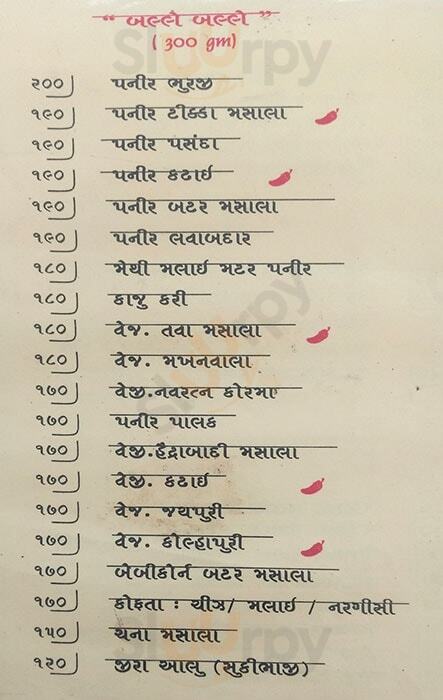 “ બલ્લે બલ્લે ”
( 300 gm)
૨૦૦ પનીર ભુરજી
૧૯૦ પનીર ટીક્કા મસાલા
૧૯૦ પનીર પસંદા
૧૯૦ પનીર કઢાઈ
૧૯૦ પનીર બટર મસાલા
૧૯૦ પનીર લવાબદાર
૧૮૦ મેથી મલાઈ મટર પનીર
૧૮૦ કાજુ કરી
૧૮૦ વેજ. તવા મસાલા
૧૮૦ વેજ. મખનવાલા
૧૭૦ વેજી.નવરત્ન કોરમા
૧૭૦ પનીર પાલક
૧૭૦ વેજી.હૈદ્રાબાદી મસાલા
૧૭૦ વેજી. કઢાઈ
૧૭૦ વેજ. જયપુરી
૧૭૦ વેજ. કોલ્હાપુરી
૧૭૦ બેબીકોર્ન બટર મસાલા
૧૭૦ કોફતા : ચીઝ/ મલાઈ / નરણીસી
૧૫૦ ચના મસાલા
૧૨૦ જીરા આલુ (સુકીભાજી)